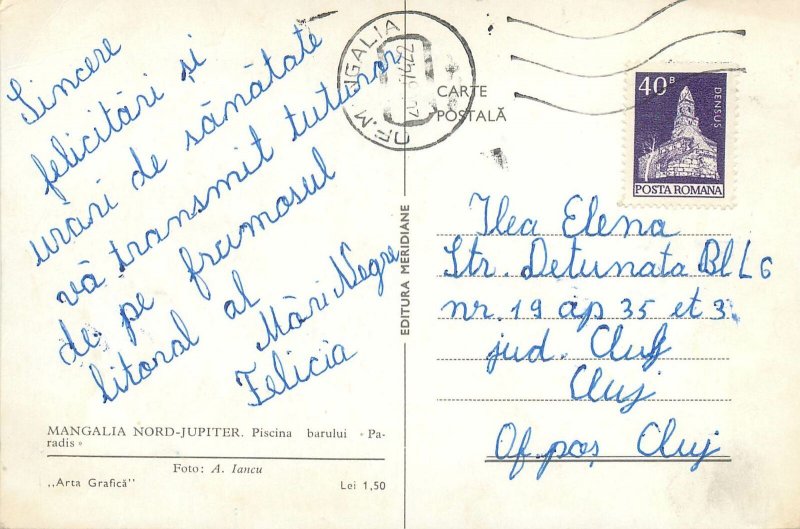 Sincere
felicitări și
urări de sănătate
vă transmit tuturor
de pe frumosul
litoral al
Mări Negre
Felicia
MANGALIA NORD-JUPITER. Piscina barului «Pa-
radis»
Foto: A. Iancu
„Arta Grafică”
Lei 1,50
EDITURA MERIDIANE
OF. MANGALIA
CARTE
POSTALĂ
40 B
DENSUS
POSTA ROMANA
Ilea Elena
Str. Detunata Bl L6
nr. 19 ap 35 et 3.
jud. Cluj
Cluj
Of. poș Cluj